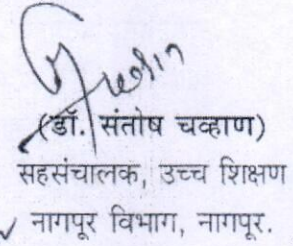 (डॉ. संतोष चव्हाण)
सहसंचालक, उच्च शिक्षण
नागपूर विभाग, नागपूर.